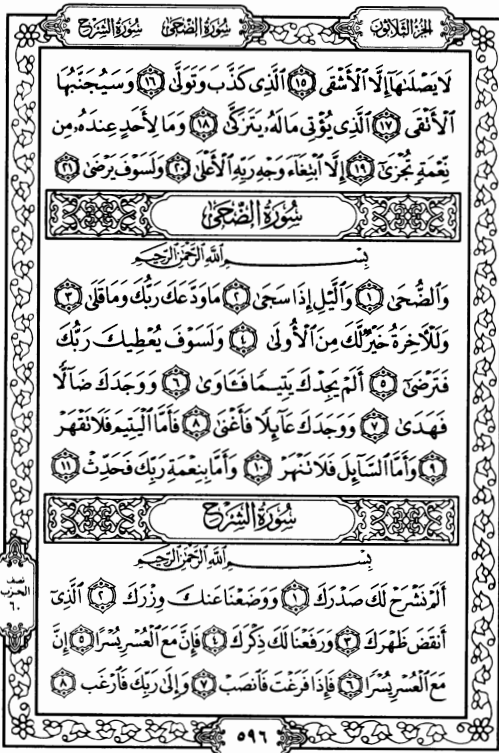 الجزء الثلاثون
سورة الضحى سورة الشرح
لَا يَصْلَىٰهَآ إِلَّا ٱلْأَشْقَى ١٥ ٱلَّذِى كَذَّبَ وَتَوَلَّىٰ ١٦ وَسَيُجَنَّبُهَا
ٱلْأَتْقَى ١٧ ٱلَّذِى يُؤْتِى مَالَهُۥ يَتَزَكَّىٰ ١٨ وَمَا لِأَحَدٍ عِندَهُۥ مِن
نِّعْمَةٍ تُجْزَىٰٓ ١٩ إِلَّا ٱبْتِغَآءَ وَجْهِ رَبِّهِ ٱلْأَعْلَىٰ ٢٠ وَلَسَوْفَ يَرْضَىٰ ٢١
سُورَةُ الضُّحَى
بِسْمِ ٱللَّهِ ٱلرَّحْمَٰنِ ٱلرَّحِيمِ
وَٱلضُّحَىٰ ١ وَٱلَّيْلِ إِذَا سَجَىٰ ٢ مَا وَدَّعَكَ رَبُّكَ وَمَا قَلَىٰ ٣
وَلَلْآخِرَةُ خَيْرٌ لَّكَ مِنَ ٱلْأُولَىٰ ٤ وَلَسَوْفَ يُعْطِيكَ رَبُّكَ
فَتَرْضَىٰٓ ٥ أَلَمْ يَجِدْكَ يَتِيمًا فَـَٔاوَىٰ ٦ وَوَجَدَكَ ضَآلًّا
فَهَدَىٰ ٧ وَوَجَدَكَ عَآئِلًا فَأَغْنَىٰ ٨ فَأَمَّا ٱلْيَتِيمَ فَلَا تَقْهَرْ
٩ وَأَمَّا ٱلسَّآئِلَ فَلَا تَنْهَرْ ١٠ وَأَمَّا بِنِعْمَةِ رَبِّكَ فَحَدِّثْ ١١
سُورَةُ الشَّرْحِ
بِسْمِ ٱللَّهِ ٱلرَّحْمَٰنِ ٱلرَّحِيمِ
أَلَمْ نَشْرَحْ لَكَ صَدْرَكَ ١ وَوَضَعْنَا عَنكَ وِزْرَكَ ٢ ٱلَّذِىٓ
أَنقَضَ ظَهْرَكَ ٣ وَرَفَعْنَا لَكَ ذِكْرَكَ ٤ فَإِنَّ مَعَ ٱلْعُسْرِ يُسْرًا ٥ إِنَّ
مَعَ ٱلْعُسْرِ يُسْرًا ٦ فَإِذَا فَرَغْتَ فَٱنصَبْ ٧ وَإِلَىٰ رَبِّكَ فَٱرْغَب ٨
نصف
الحزب
٦٠
٥٩٦